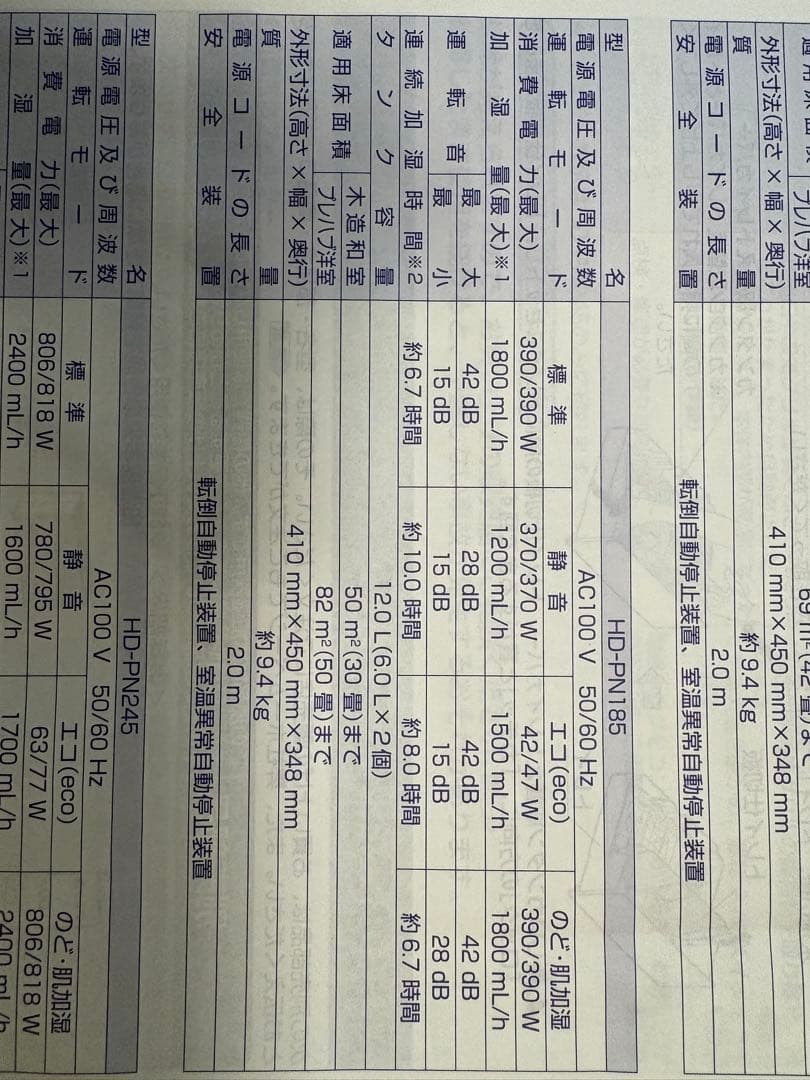 プレハブ洋室
外形寸法(高さ×幅×奥行) 410 mm×450 mm×348 mm
質量 約9.4 kg
電源コードの長さ 2.0 m
安全装置 転倒自動停止装置、室温異常自動停止装置
型名 HD-PN185
電源電圧及び周波数 AC100 V 50/60 Hz
運転モード 標準 静音 エコ(eco) のど・肌加湿
消費電力(最大) 390/390 W 370/370 W 42/47 W 390/390 W
加湿量(最大)※1 1800 mL/h 1200 mL/h 1500 mL/h 1800 mL/h
運転音 最大 42 dB 28 dB 42 dB 42 dB
最小 15 dB 15 dB 15 dB 28 dB
連続加湿時間※2 約6.7 時間 約10.0 時間 約8.0 時間 約6.7 時間
タンク容量 12.0 L(6.0 L×2個)
適用床面積 木造和室 50 m²(30 畳)まで
プレハブ洋室 82 m²(50 畳)まで
外形寸法(高さ×幅×奥行) 410 mm×450 mm×348 mm
質量 約9.4 kg
電源コードの長さ 2.0 m
安全装置 転倒自動停止装置、室温異常自動停止装置
型名 HD-PN245
電源電圧及び周波数 AC100 V 50/60 Hz
運転モード 標準 静音 エコ(eco) のど・肌加湿
消費電力(最大) 806/818 W 780/795 W 63/77 W 806/818 W
加湿量(最大)※1 2400 mL/h 1600 mL/h 1700 mL/h 2400 mL/h